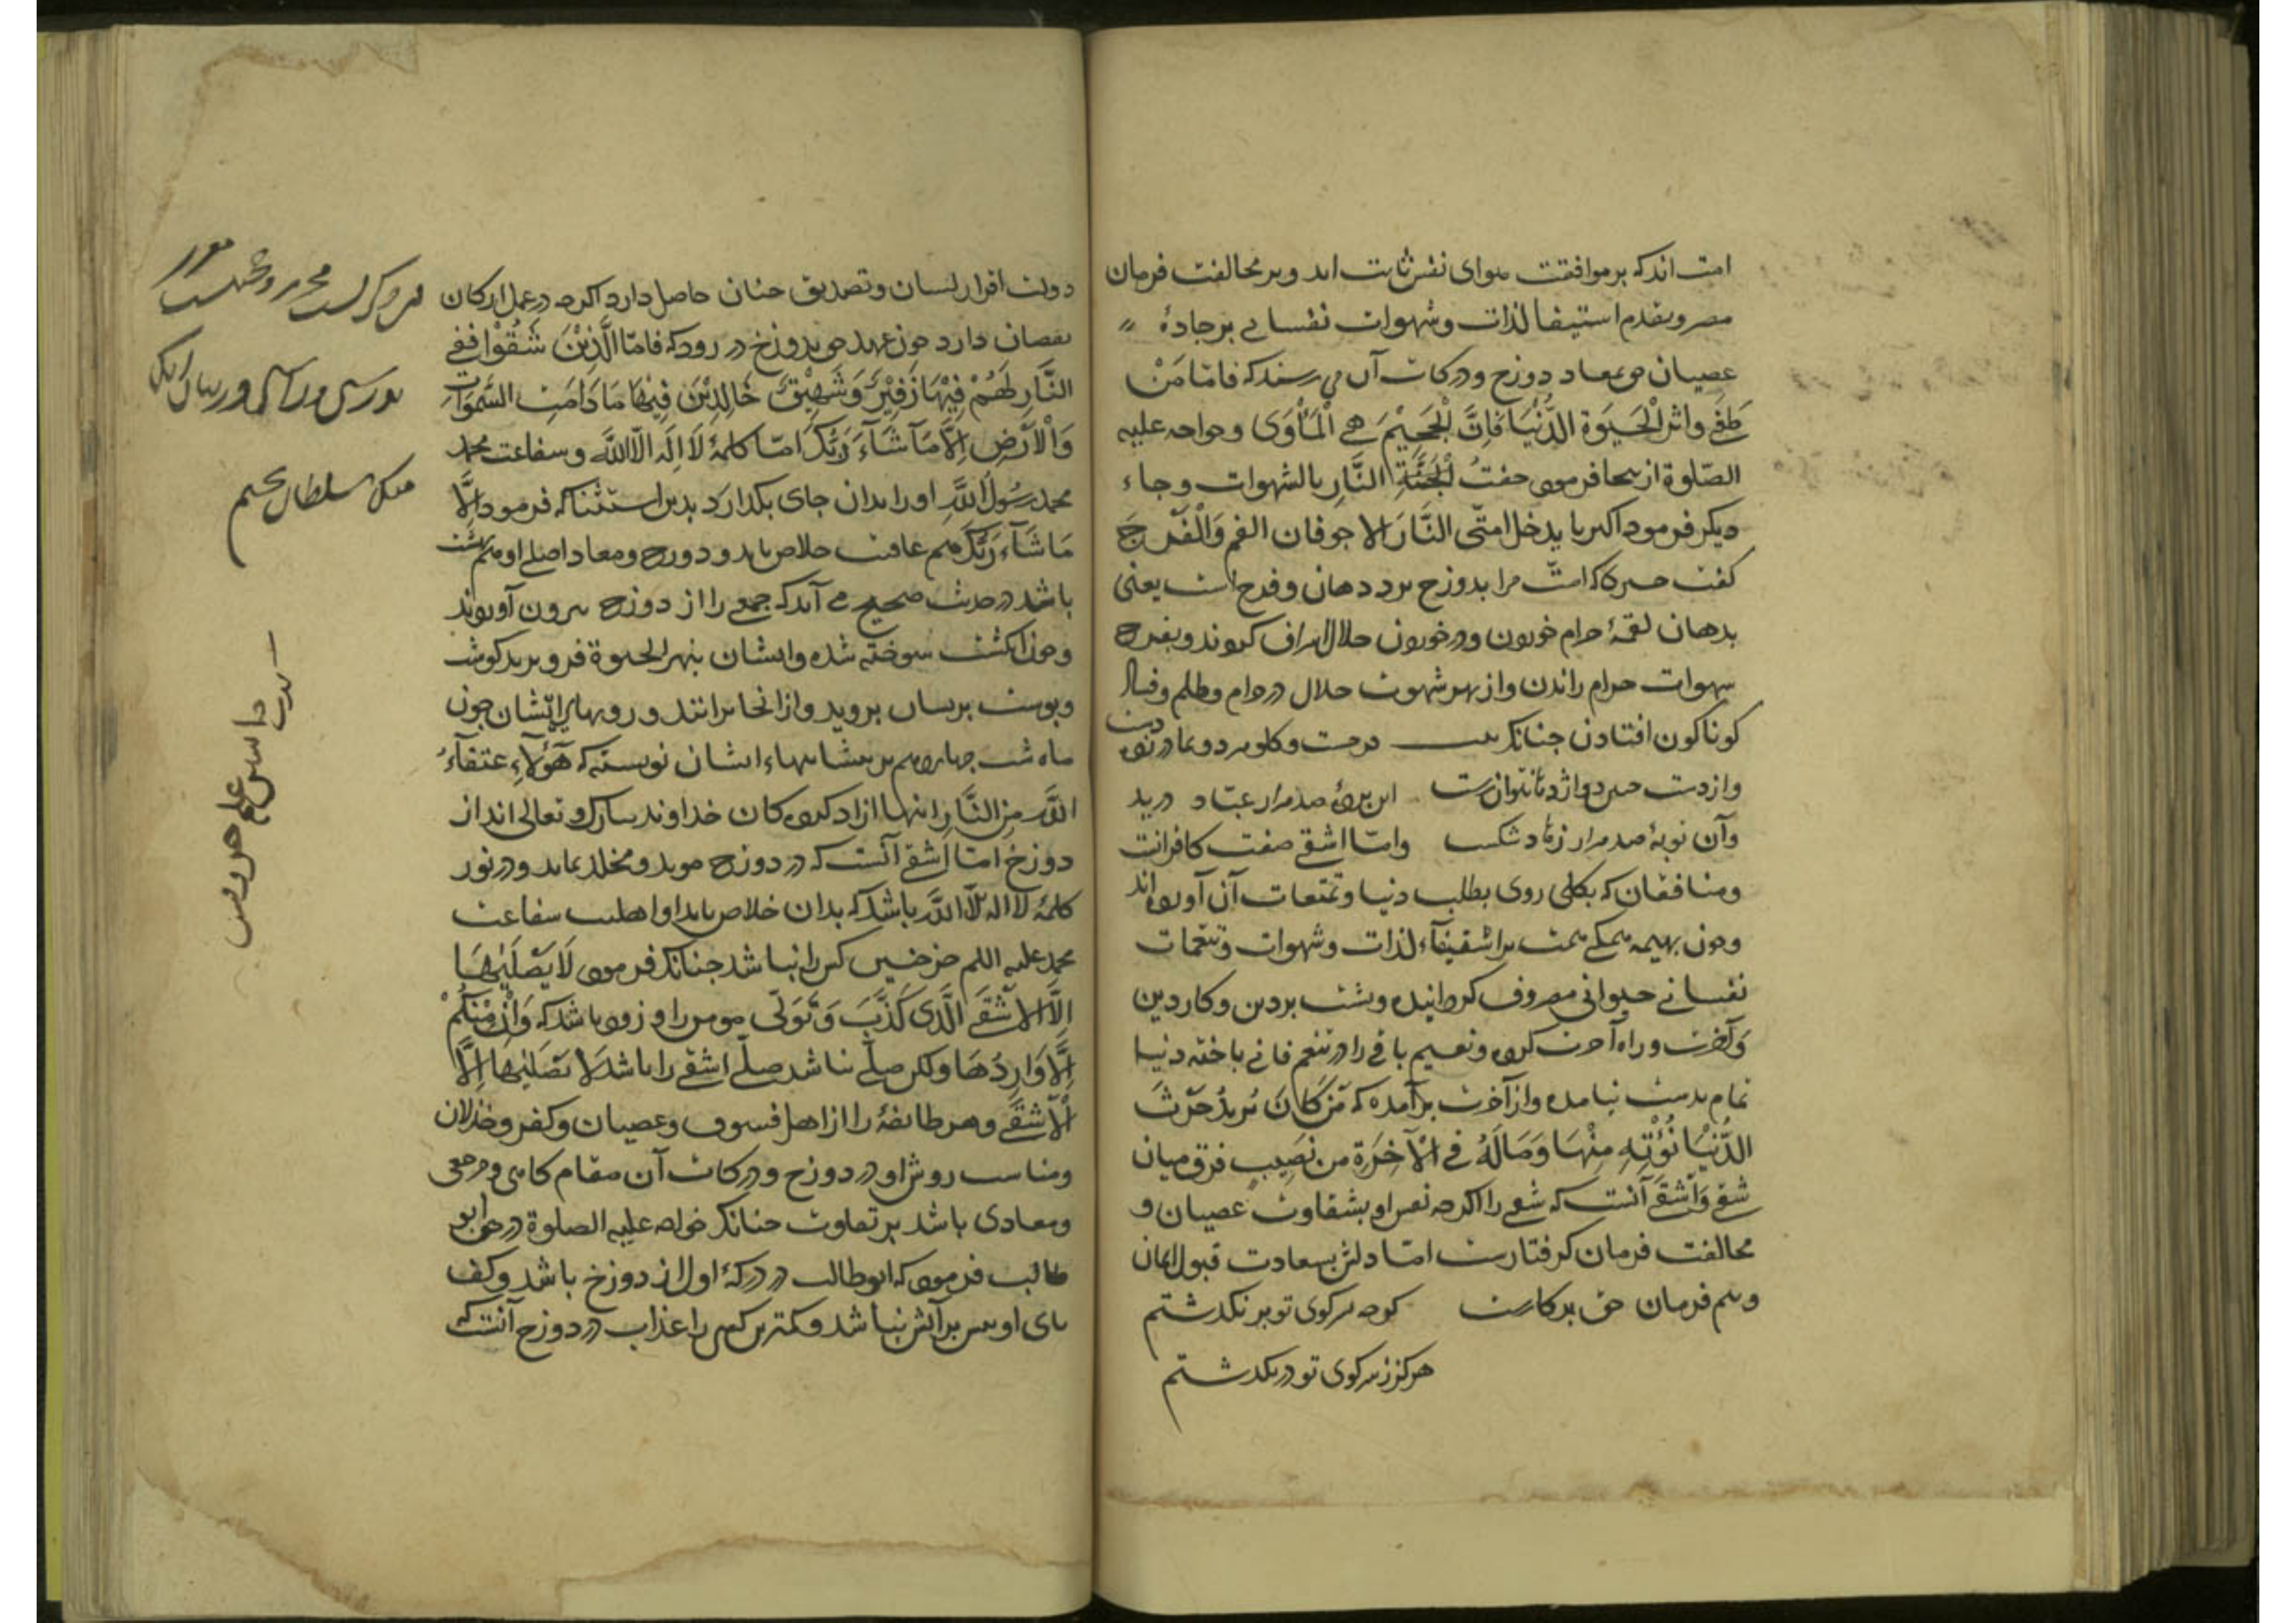 امت اند که بر موافقت هوای نفس ثابت اند و بر مخالفت فرمان
مصر و بقدم استیفا لذات و شهوات نفسانی بر جادهٔ
عصیان می بمعاد دوزخ و درکات آن می رسند که فاما مَنْ
طَغٰی واثر الْحَیوٰةَ الدُّنْیَا فَاِنَّ الْجَحِیْمَ هِیَ الْمَأْوَی و خواجه علیه
الصّلوة ازینجا فرمود حفتُ الْجَنَّةِ النَّارِ بالشهوات و جاء
دیکر فرمود اکبر ما یدخل امتی النَّارَ الاجوفان الفم وَالْفَرْجَ
کفت امت مرا بدوزخ برد دهان و فرج است یعنی
بدهان لقمهٔ حرام خوردن و در خوردن حلال اسراف کردند و بفرج
شهوات حرام راندن و از بهر شهوت حلال در حرام و ظلم و فساد
کوناکون افتادن چنانک
واز دست
این صد هزار عباد درید
وآن توبهٔ صد هزار زهاد شکست وامّا اشقی صفت کافرانست
ومنافقان که بکلی روی بطلب دنیا و تمتعات آن آورده اند
و چون بهیمه همکی همت بر استیفآء لذات و شهوات و تنعمات
نفسانی حیوانی مصروف کردانیده و پشت بر دین و کار دین
وآخرت و راه آخرت کرده و نعیم باقی را در تنعم فانی باخته دنیا
تمام بدست نیامده و از آخرت برآمده که مَنْ کَانَ یُرِیدُ حَرْثَ
الدُّنْیَا نُؤْتِهِ مِنْهَا وَمَالَهُ فِی الْآخِرَةِ مِن نَصِیبٍ فرق میان
شقی وَاَشْقَی آنست که شقی را اکرچه نفس او بشقاوت عصیان و
مخالفت فرمان کرفتارست امّا دلش بسعادت قبول ایمان
و هم فرمان حق برکارست کرچه سر کوی تو بر نکذشتم
هرکز ز سر کوی تو در نکذشتم
دولت اقرار لسان و تصدیق جنان حاصل دارد اکرچه در عمل ارکان
نقصان دارد چون عهد می بدوزخ در رود که فامّا الَّذِیْنَ شَقُوْا فَفِی
النَّارِ لَهُمْ فِیْهَا زَفِیْرٌ وَشَهِیْقٌ خَالِدِیْنَ فِیْهَا مَا دَامَتِ السَّمٰوَاتُ
وَالْاَرْضُ اِلَّا مَاشَآءَ رَبُّكَ امّا کلمهٔ لَا اِلٰهَ اِلَّا اللهُ و شفاعت محمد
محمد رَسُولُ اللهِ او را بدان جای بکذارد بدین استثنا که فرمود اِلَّا
مَا شَآءَ رَبُّكَ هم عاقبت خلاص یابد و دوزخ و معاد اصلی او بهشت
باشد در حدیث صحیح می آید که جمعی را از دوزخ بیرون آورند
و چون انکشت سوخته شده و ایشان بنهر الحیوة فرو برند کوشت
و پوست بریشان بروید و از انجا برایند و رویهای ایشان چون
ماه شب چهاردهم بر پیشانیهاء ایشان نوشته که هٰؤُلَآءِ عتقآءُ
اللهِ مِنَ النَّارِ اینها ازاد کرده کان خداوند تبارک و تعالی اند از
دوزخ امّا اشقی آنست که در دوزخ موبد و مخلد بماند و در نور
کلمهٔ لا اله الّا الله باشد که بدان خلاص یابد او اهلیت شفاعت
محمد علیه السلم جز چنین کس را نباشد چنانک فرمود لَا یَصْلٰیهَا
اِلَّا الْاَشْقَی الَّذِی کَذَّبَ وَتَوَلّٰی مومن را ورود باشد که وَاِنْ مِّنْکُمْ
اِلَّا وَارِدُهَا ولکن صلی نباشد صلی اشقی را باشد لَا یَصْلٰیهَا اِلَّا
الْاَشْقَی و هر طائفهٔ را از اهل فسوق و عصیان و کفر و خذلان
و مناسب روش او در دوزخ و درکات آن مقام کاهی و مرجعی
و معادی باشد بر تفاوت چنانک خواجه علیه الصلوة در حق ابو
طالب فرمود که ابوطالب در درکهٔ اول از دوزخ باشد و کف
پای او بیش بر آتش نباشد و کمترین کسی را عذاب در دوزخ آنست که